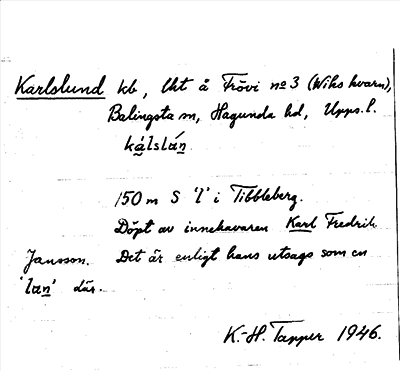 Karlslund kb, lht å Frövi nº 3 (Wiks kvarn),
Balingsta sn, Hagunda hd, Upps. l.
kálslán
150 m S 'l' i Tibbleberg.
Döpt av innehavaren Karl Fredrik
Jansson. Det är enligt hans utsago som en
'lan' där.
K.-H. Tapper 1946.